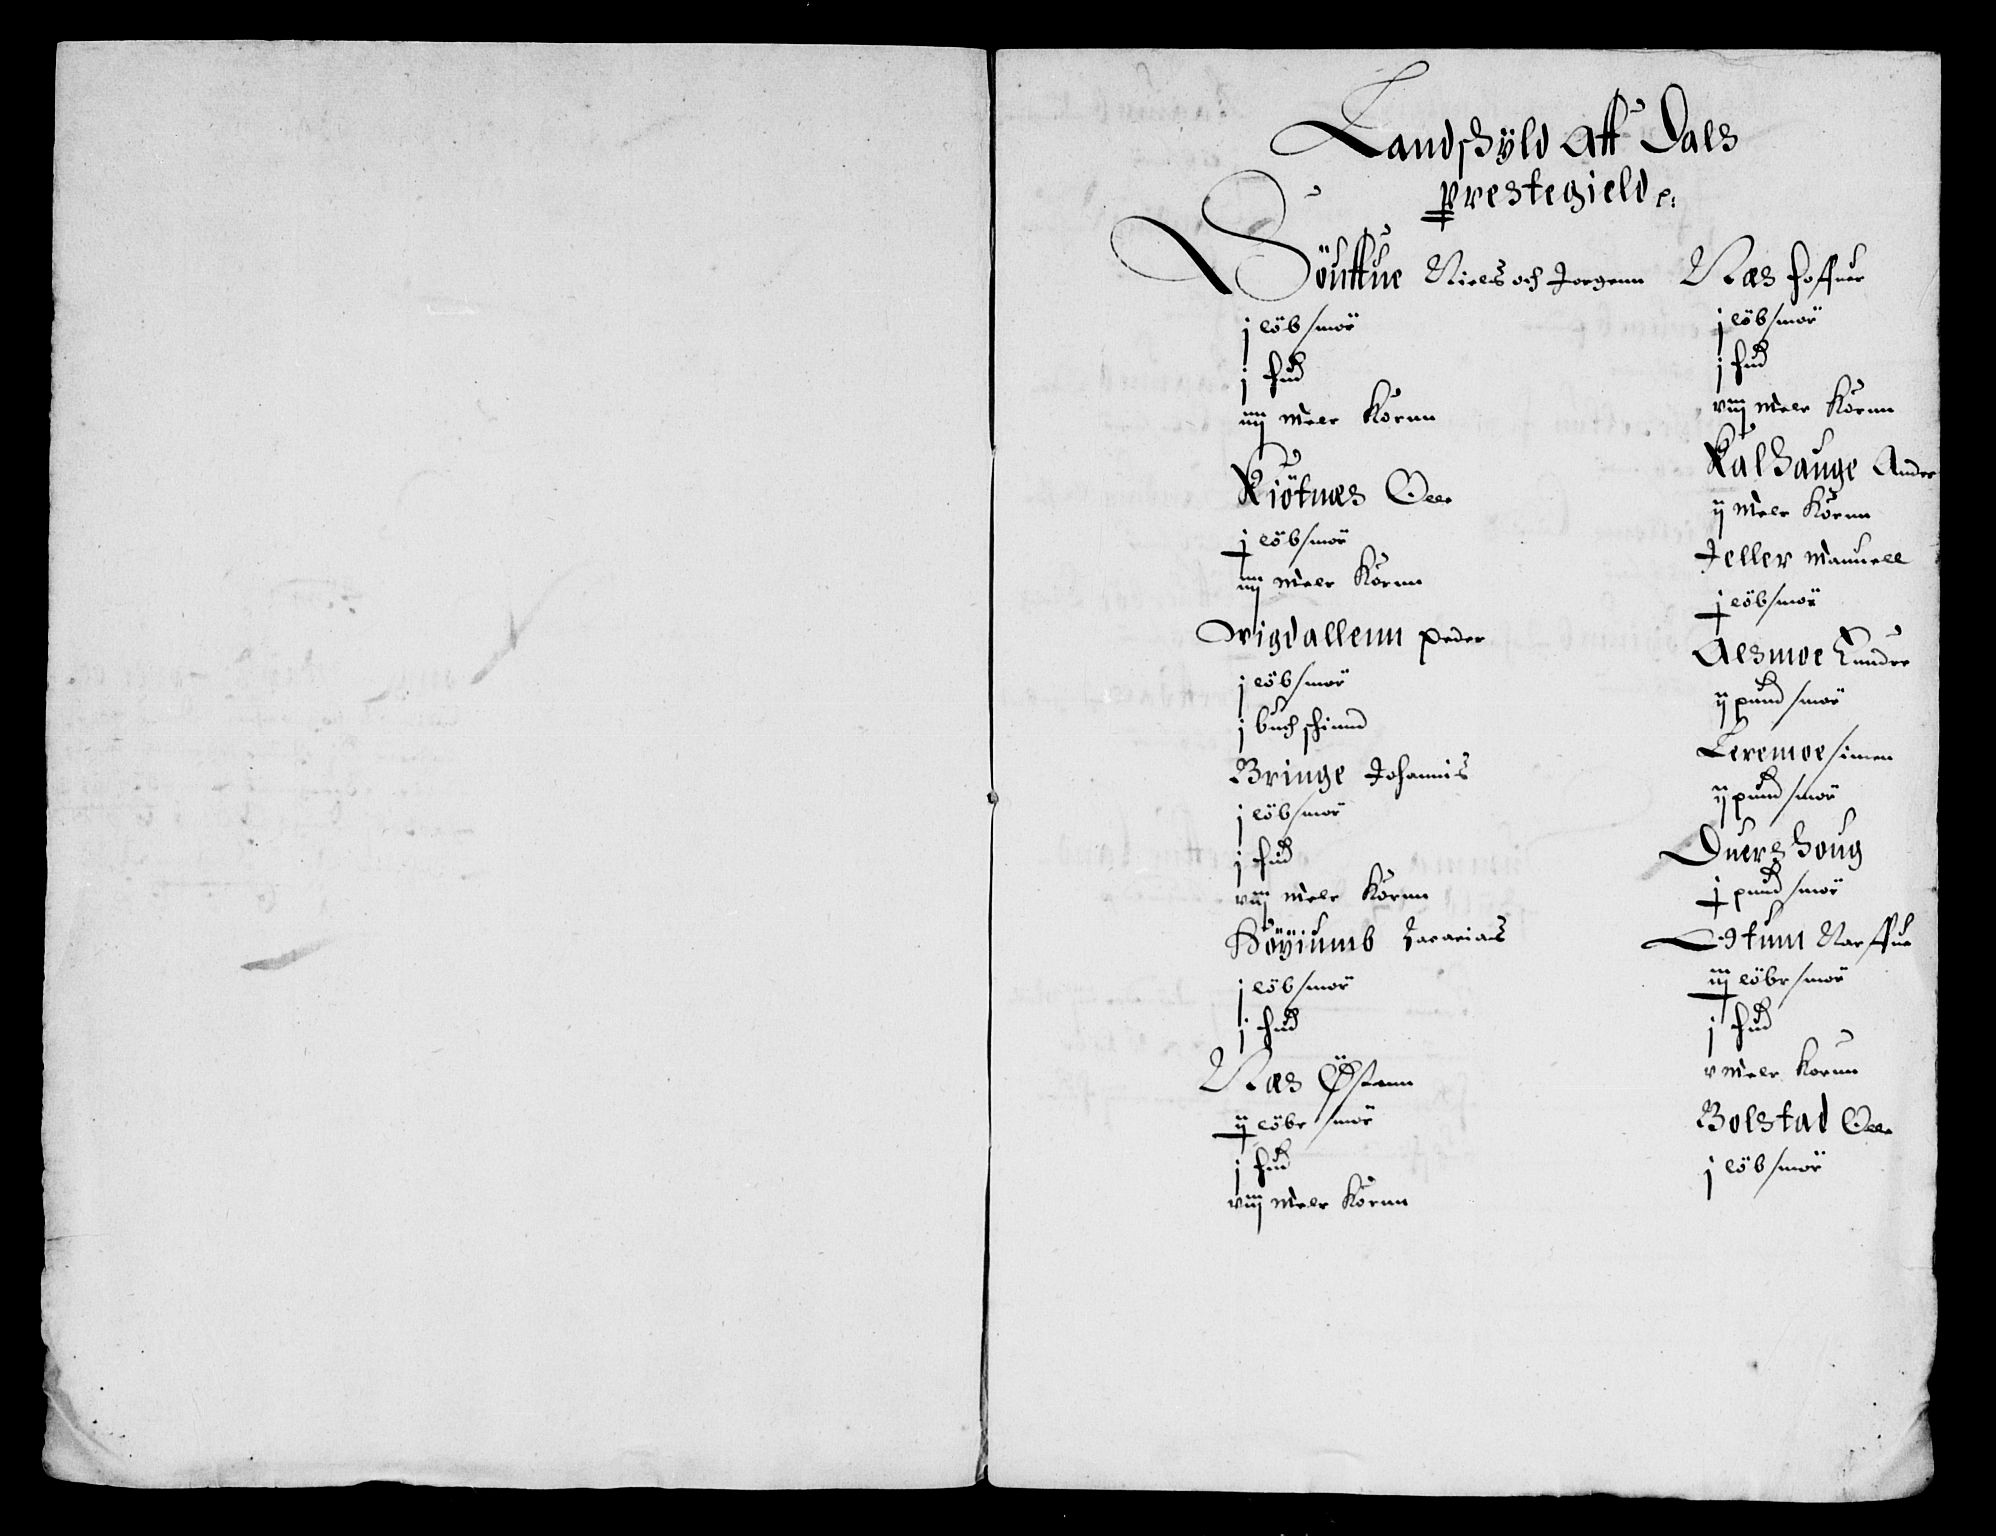 Landschÿld Aff Dals
prestegield
Niels och Jorgenn
j löb smör
j hud
iiij meler Kornn
Kiötnæs Olle
j löb smör
iiij meler Kornn
Vigdallenn peder
j löb smör
j buch schinnd
Bringe Johannis
j löb smör
j hud
viij meler Kornn
Höÿiumb Zacarias
j löb smör
j hud
Næs Östenn
ij löber smör
j hud
viij meler Kornn
Næs
j löb smör
j hud
viij meler Kornn
Kalhauge Ander
ij meler Kornn
Jeller Manuell
j löb smör
Alsmoe
ij pund smör
Leremoe simen
ij pund smör
Duershoug
j pund smör
Otum
iij löber smör
j hud
v meler Kornn
Bolstad Olle
j löb smör